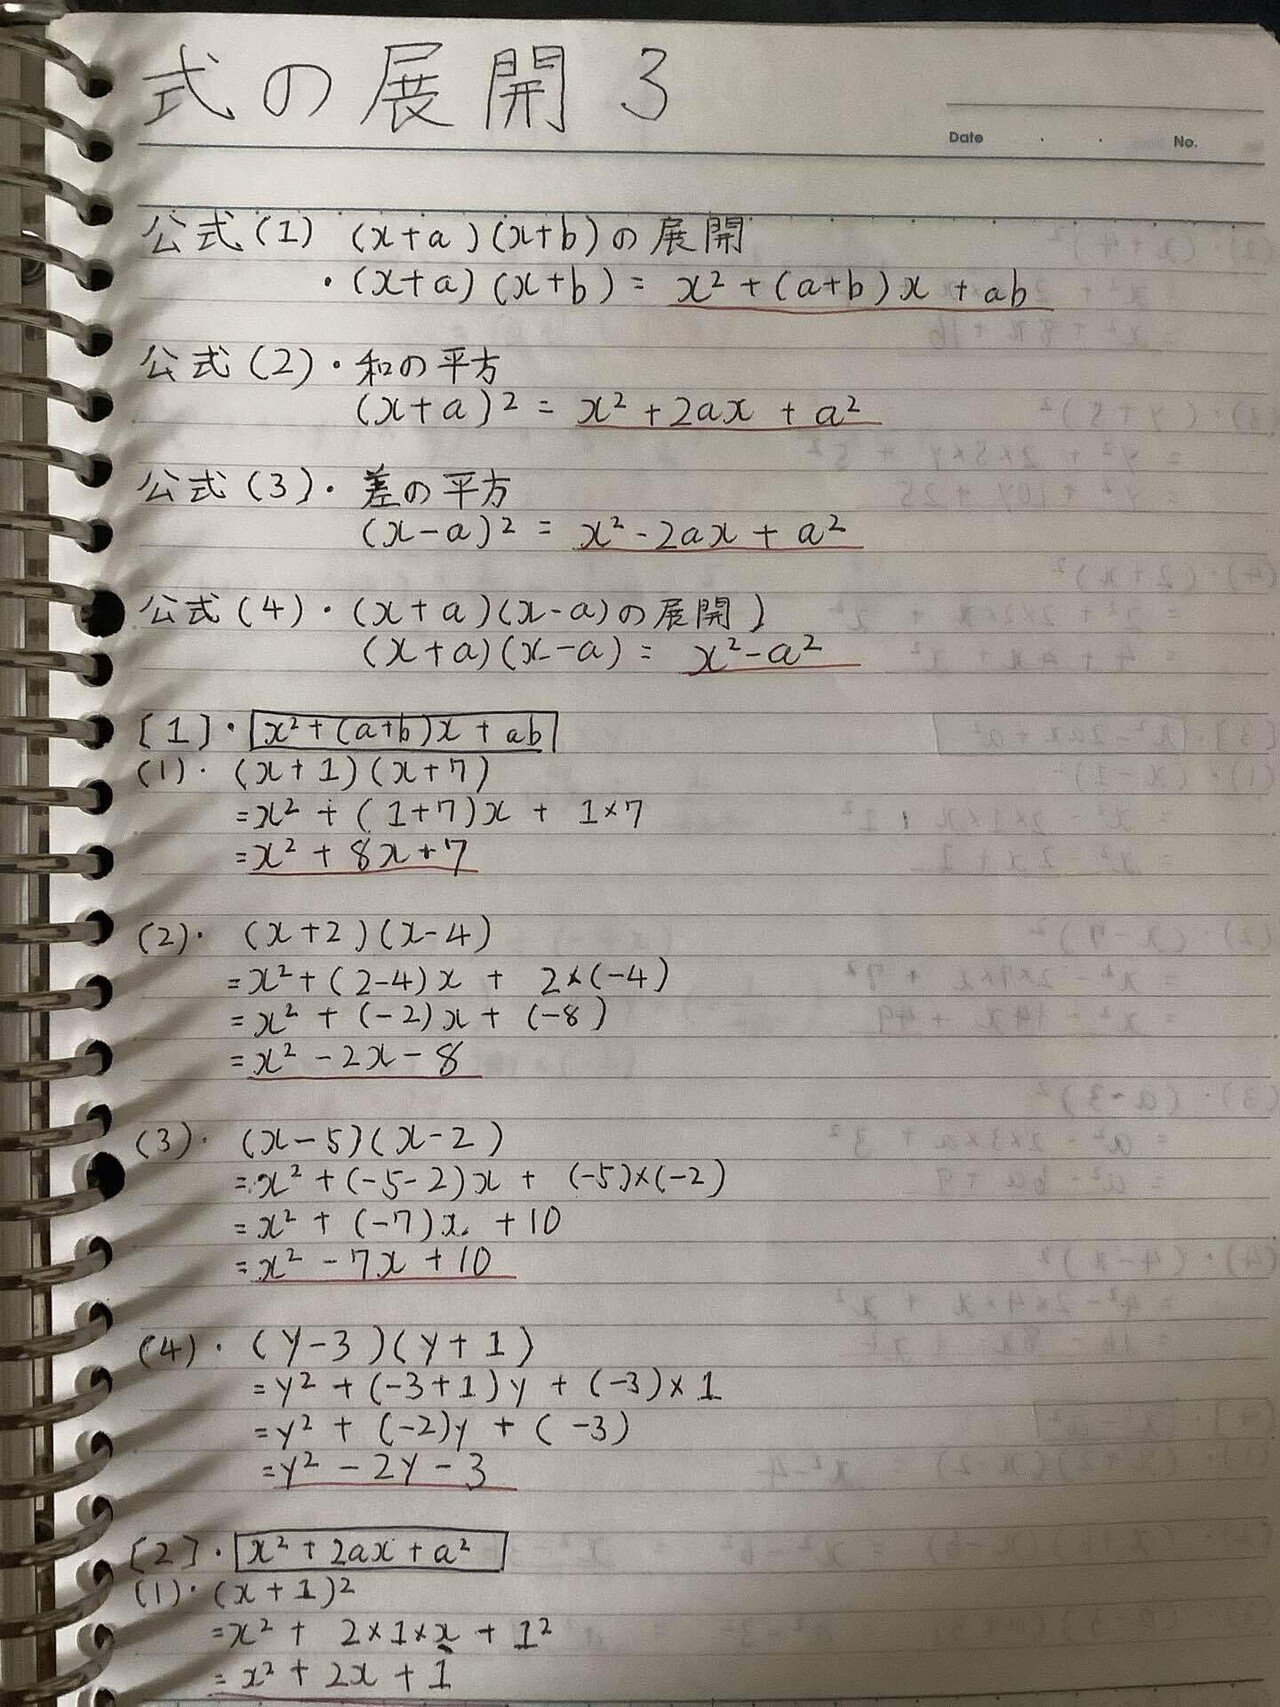 式の展開 3
Date . . No.
公式(1) (x+a)(x+b)の展開
・(x+a)(x+b) = x²+(a+b)x+ab
公式(2)・和の平方
(x+a)² = x²+2ax+a²
公式(3)・差の平方
(x-a)² = x²-2ax+a²
公式(4)・(x+a)(x-a)の展開
(x+a)(x-a) = x²-a²
[1]・x²+(a+b)x+ab
(1)・(x+1)(x+7)
=x²+(1+7)x+1×7
=x²+8x+7
(2)・(x+2)(x-4)
=x²+(2-4)x+2×(-4)
=x²+(-2)x+(-8)
=x²-2x-8
(3)・(x-5)(x-2)
=x²+(-5-2)x+(-5)×(-2)
=x²+(-7)x+10
=x²-7x+10
(4)・(y-3)(y+1)
=y²+(-3+1)y+(-3)×1
=y²+(-2)y+(-3)
=y²-2y-3
[2]・x²+2ax+a²
(1)・(x+1)²
=x²+2×1×x+1²
=x²+2x+1